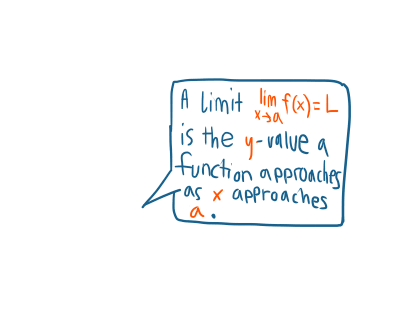 A limit lim x→a f(x) = L
is the y-value a
function approaches
as x approaches
a.